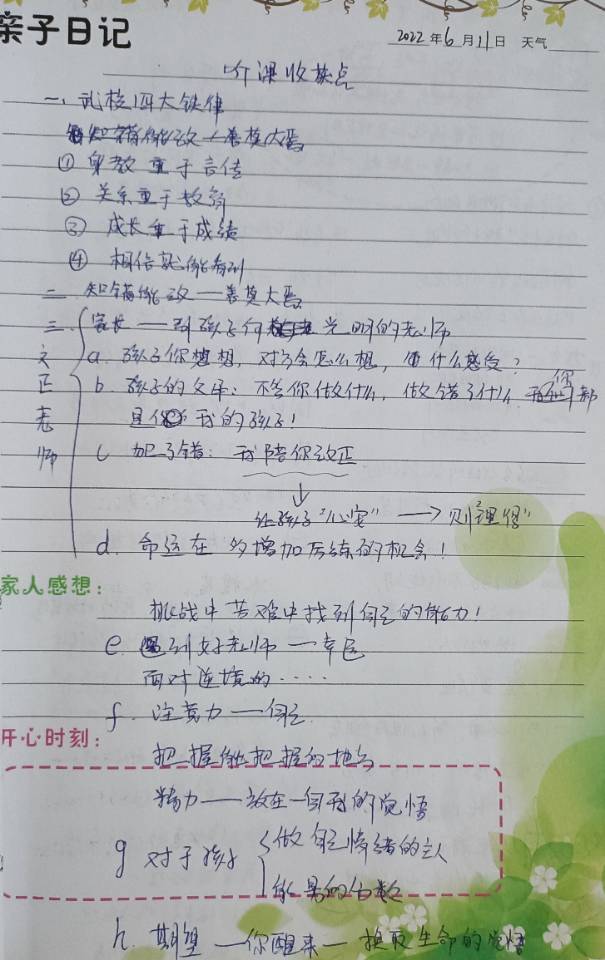 亲子日记
2022年6月11日 天气
听课收获点
一、武校四大铁律
知错能改一善莫大焉
① 身教重于言传
② 关系重于教育
③ 成长重于成绩
④ 相信就能看到
二 知错能改——善莫大焉
三 家长——引孩子何 光明的老师
文正老师
a. 孩子你想想,对方会怎么想,有什么感受?
b. 孩子的父母:不管你做什么,做错了什么 你都
是我的孩子!
c 犯了错:我陪你改正
让孩子“心安” → 则“理得”
d. 命运在 增加历练的机会!
家人感想:
挑战中苦难中找到自己的能力!
e. 遇到好老师一幸运
面对逆境的····
f. 注意力一自己
开心时刻:
把握能把握的地方
精力——放在一自我的觉悟
g 对于孩子
做自己情绪的主人
能量的
h. 期望—你醒来— 换取生命的觉悟